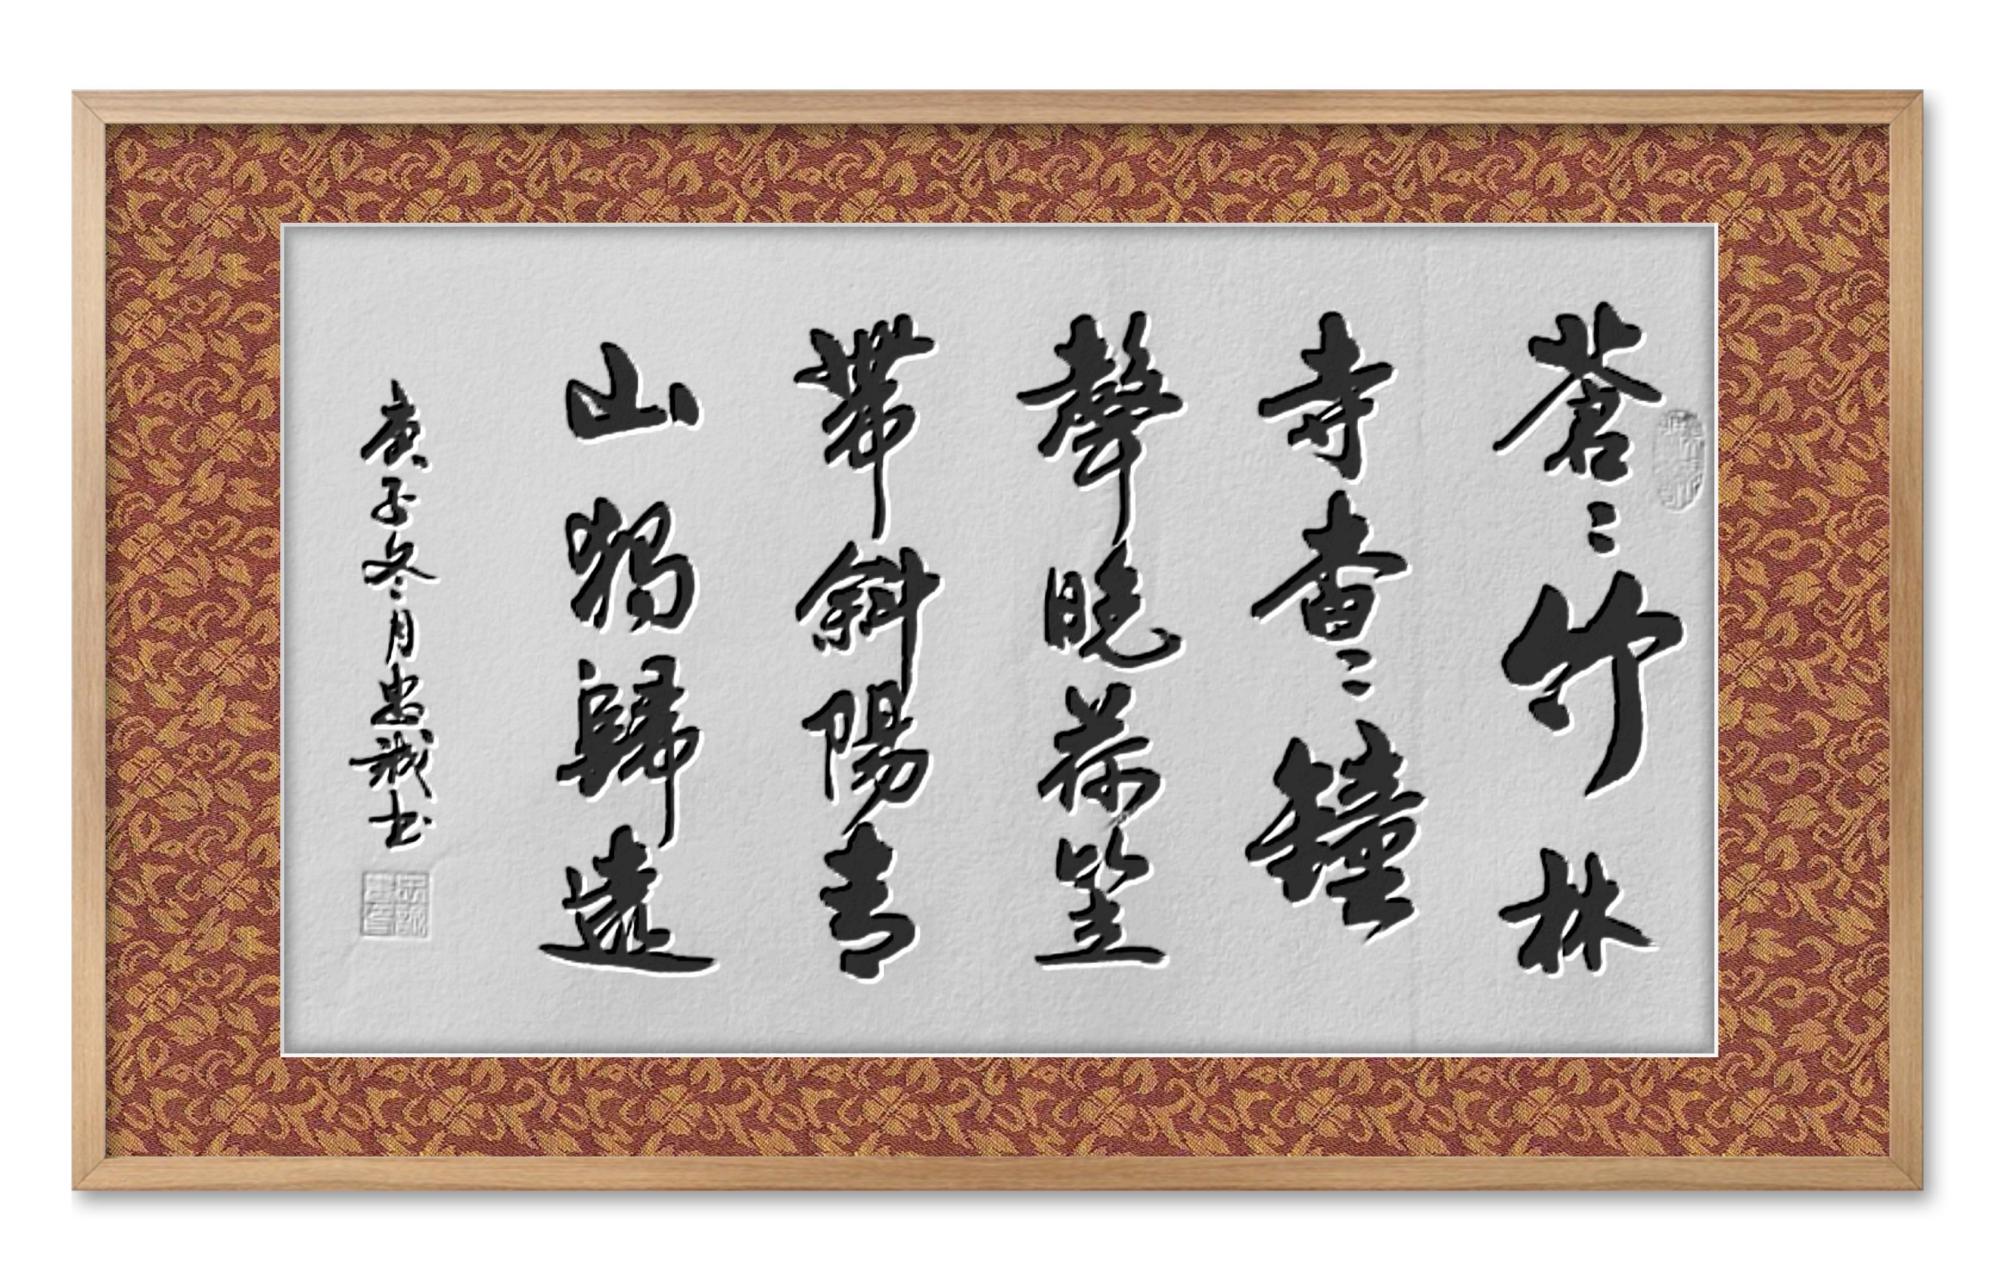 蒼〻竹林
寺杳〻鐘
聲晚荷笠
帶斜陽青
山獨歸遠
庚子冬月忠誠书